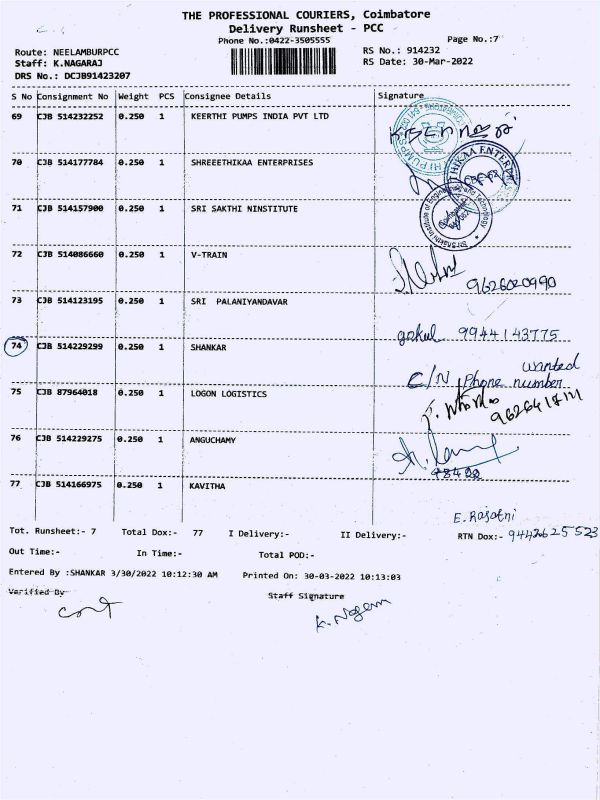 THE PROFESSIONAL COURIERS, Coimbatore
Delivery Runsheet - PCC
Phone No.:0422-3505555
Page No.:7
Route: NEELAMBURPCC
RS No.: 914232
Staff: K.NAGARAJ
RS Date: 30-Mar-2022
DRS No.: DCJB91423207
S No Consignment No Weight PCS Consignee Details Signature
69 CJB 514232252 0.250 1 KEERTHI PUMPS INDIA PVT LTD
70 CJB 514177784 0.250 1 SHREEETHIKAA ENTERPRISES
THIKAA ENTERP
71 CJB 514157900 0.250 1 SRI SAKTHI NINSTITUTE
Sri Shakthi Institute of Engineering and Technology
72 CJB 514086660 0.250 1 V-TRAIN
9626020990
73 CJB 514123195 0.250 1 SRI PALANIYANDAVAR
gokul 9944143775
74 CJB 514229299 0.250 1 SHANKAR
wanted
C/N Phone number
75 CJB 87964018 0.250 1 LOGON LOGISTICS
76 CJB 514229275 0.250 1 ANGUCHAMY
77 CJB 514166975 0.250 1 KAVITHA
E. Rajatni
Tot. Runsheet:- 7 Total Dox:- 77 I Delivery:- II Delivery:- RTN Dox:- 9442625523
Out Time:- In Time:- Total POD:-
Entered By :SHANKAR 3/30/2022 10:12:30 AM Printed On: 30-03-2022 10:13:03
Varified By Staff Signature
K. Nagaraj